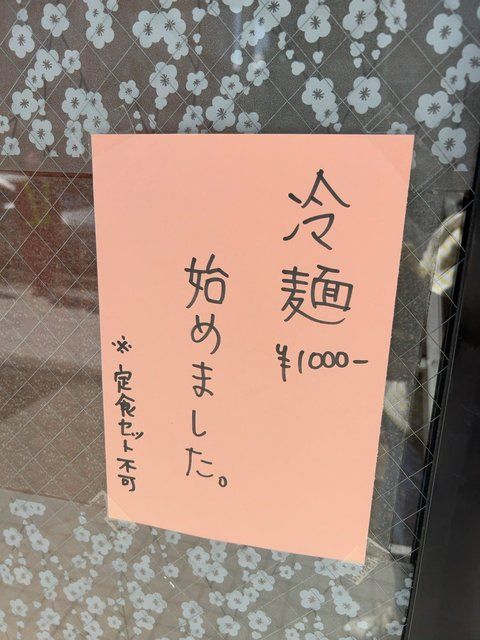 冷麺
¥1000-
始めました。
※定食セット不可